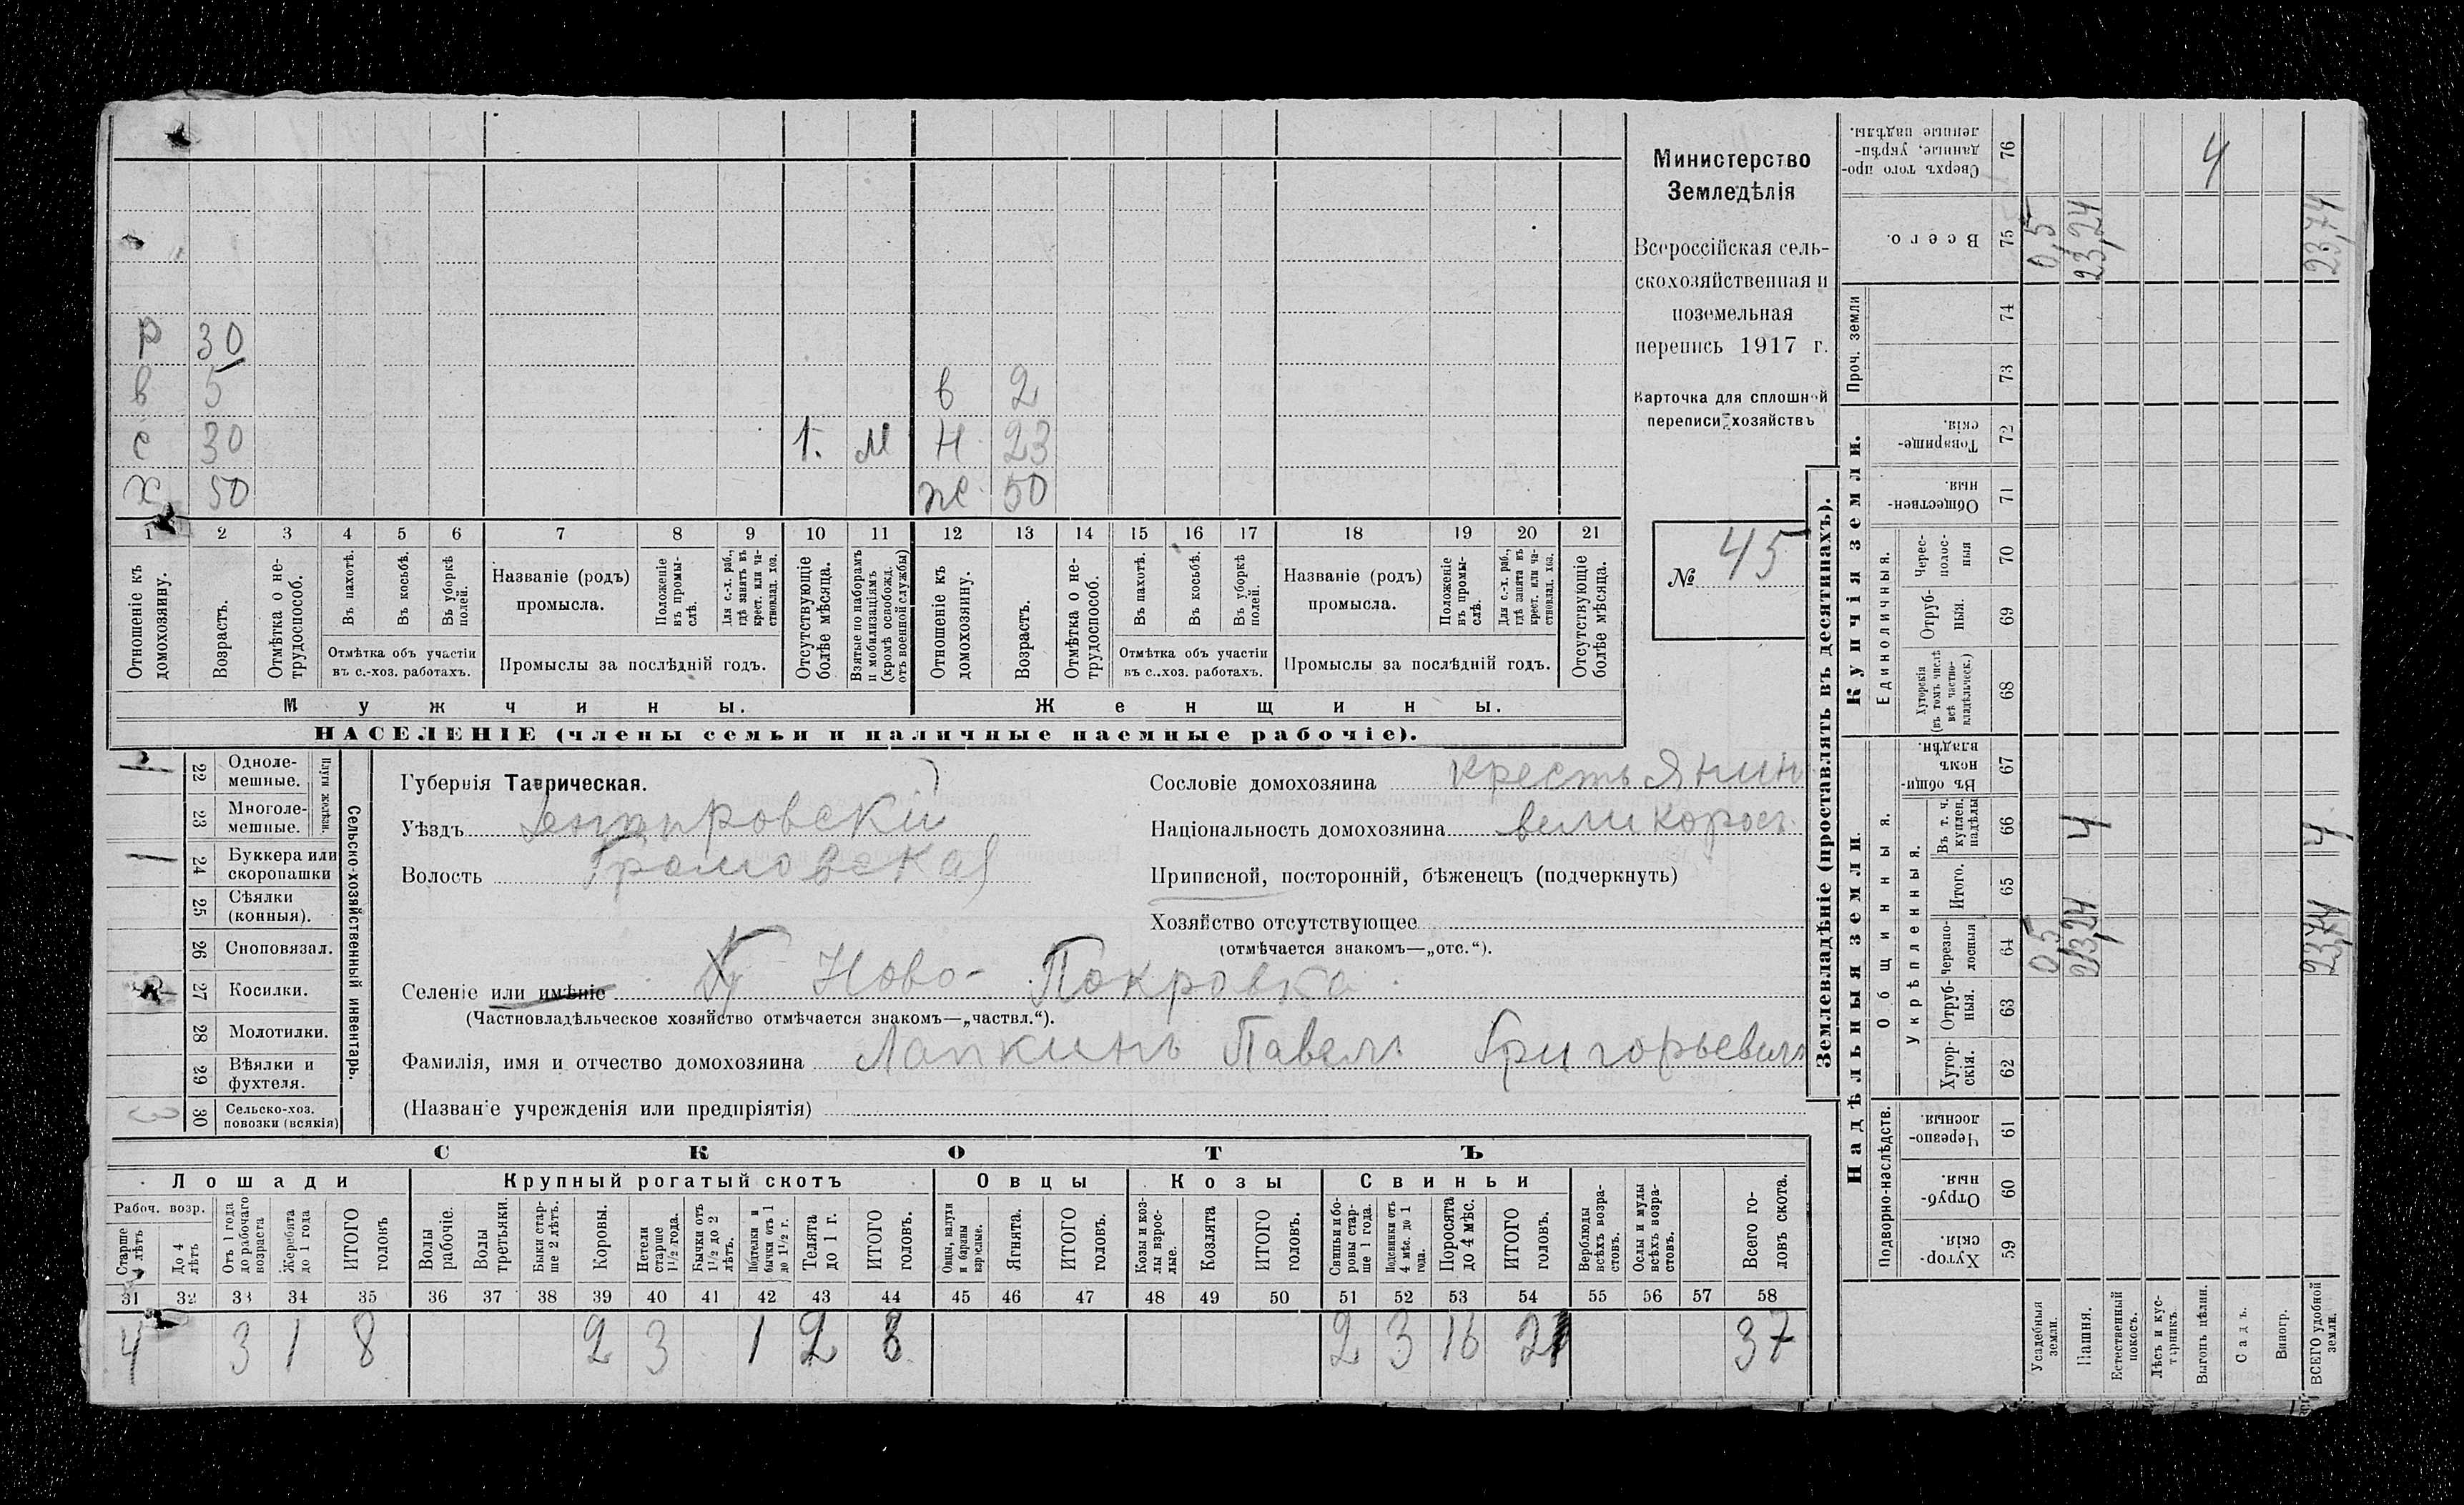 Р 30
в 5 в 2
с 30 1. м н 23
х 50 ж 50
1 2 3 4 5 6 7 8 9 10 11 12 13 14 15 16 17 18 19 20 21
Отношеніе къ домохозяину.
Возрастъ.
Отмѣтка о не-
трудоспособ.
Въ пахотѣ.
Въ косьбѣ.
Въ уборкѣ полей.
Отмѣтка объ участіи
въ с.-хоз. работахъ.
Названіе (родъ)
промысла.
Положеніе
въ промы-
слѣ.
Для с.-х. раб.,
гдѣ занятъ въ
крест. или ча-
стновлад. хоз.
Промыслы за послѣдній годъ.
Отсутствующіе
болѣе мѣсяца.
Взятые по наборамъ
и мобилизаціямъ
(кромѣ освобожд.
отъ военной службы)
Отношеніе къ
домохозяину.
Возрастъ.
Отмѣтка о не-
трудоспособ.
Въ пахотѣ.
Въ косьбѣ.
Въ уборкѣ
полей.
Отмѣтка объ участіи
въ с..хоз. работахъ.
Названіе (родъ)
промысла.
Положеніе
въ промы-
слѣ.
Для с.-х. раб.,
гдѣ занята въ
крест. или ча-
стновлад. хоз.
Промыслы за послѣдній годъ.
Отсутствующіе
болѣе мѣсяца.
Мужчины. Женщины.
НАСЕЛЕНІЕ (члены семьи и наличные наемные рабочіе).
Министерство
Земледѣлія
Всероссійская сель-
скохозяйственная и
поземельная
перепись 1917 г.
Карточка для сплошной
переписи хозяйствъ
№ 45
Сельско-хозяйственный инвентарь.
Плуги желѣзн.
22 Однолe-
мешные.
23 Многоле-
мешные.
24 Буккера или
скоропашки
25 Сѣялки
(конныя).
26 Сноповязал.
27 Косилки.
28 Молотилки.
29 Вѣялки и
фухтеля.
30 Сельско-хоз.
повозки (всякія)
3
Губернія Таврическая.
Уѣздъ Днѣпровскій
Волость Громовская
Сословіе домохозяина крестьянин
Національность домохозяина великорос.
Приписной, посторонній, бѣженецъ (подчеркнуть)
Хозяйство отсутствующее
(отмѣчается знакомъ—„отс.“).
Селеніе или имѣніе Ново-Покровка
(Частновладѣльческое хозяйство отмѣчается знакомъ—„частвл.“).
Фамилія, имя и отчество домохозяина Лапкинъ Павелъ Григорьевич
(Названіе учрежденія или предпріятія)
СКОТЪ
Лошади Крупный рогатый скотъ Овцы Козы Свиньи
Рабоч. возр.
Старше
4 лѣтъ
До 4
лѣтъ
Отъ 1 года
до рабочаго
возраста
Жеребята
до 1 года
ИТОГО
головъ
Волы
рабочіе.
Волы
третьяки.
Быки стар-
ше 2 лѣтъ.
Коровы.
Нетели
старше
1½ года.
Бычки отъ
1½ до 2
лѣтъ.
Подтелки и
бычки отъ 1
до 1½ г.
Телята
до 1 г.
ИТОГО
головъ.
Овцы, валухи
и бараны
взрослые.
Ягнята.
ИТОГО
головъ.
Козы и коз-
лы взрос-
лые.
Козлята
ИТОГО
головъ.
Свиньи и бо-
ровы стар-
ше 1 года.
Подсвинки отъ
4 мѣс. до 1
года.
Поросята
до 4 мѣс.
ИТОГО
головъ.
Верблюды
всѣхъ возра-
стовъ.
Ослы и мулы
всѣхъ возра-
стовъ.
Всего го-
ловъ скота.
31 32 33 34 35 36 37 38 39 40 41 42 43 44 45 46 47 48 49 50 51 52 53 54 55 56 57 58
4 3 1 8 2 3 1 2 8 2 3 16 21 37
Землевладѣніе (проставлять въ десятинахъ).
Надѣльныя земли.
Купчія земли.
Проч. земли
Подворно-наслѣдств.
Общинныя.
Укрѣпленныя.
Единоличныя.
Сверхъ того про-
данные, укрѣп-
ленные надѣлы.
76 4
Всего.
75 0,5 23,24 23,74
74
73
Товарище-
скія.
72
Обществен-
ныя.
71
Черес-
полос-
ныя
70
Отруб-
ныя.
69
Хуторскія
(въ томъ числѣ
всѣ частно-
владѣльческ.)
68
Въ общи-
номъ
владѣн.
67
Въ т. ч.
куплен.
надѣлы
66 4 4
Итого.
65
Черезпо-
лосныя
64 0,5 23,24 23,74
Отруб-
ныя.
63
Хутор-
скія.
62
Черезпо-
лосныя
61
Отруб-
ныя.
60
Хутор-
скія.
59
Усадебныя
земли.
Пашня.
Естественный
покосъ.
Лѣсъ и кус-
тарникъ.
Выгонъ цѣлин.
Садъ.
Виногр.
ВСЕГО удобной
земли.